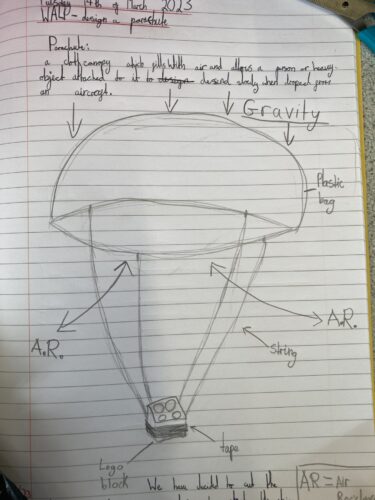 Tuesday 14th of March 2023
WALP - design a parachute
Parachute:
a cloth canopy which fills with air and allows a person or heavy
object attached to it to design descend slowly when dropped from
an aircraft.
Gravity
Plastic
bag
A.R.
A.R.
string
tape
Lego
block
We have decided to cut the
AR = Air